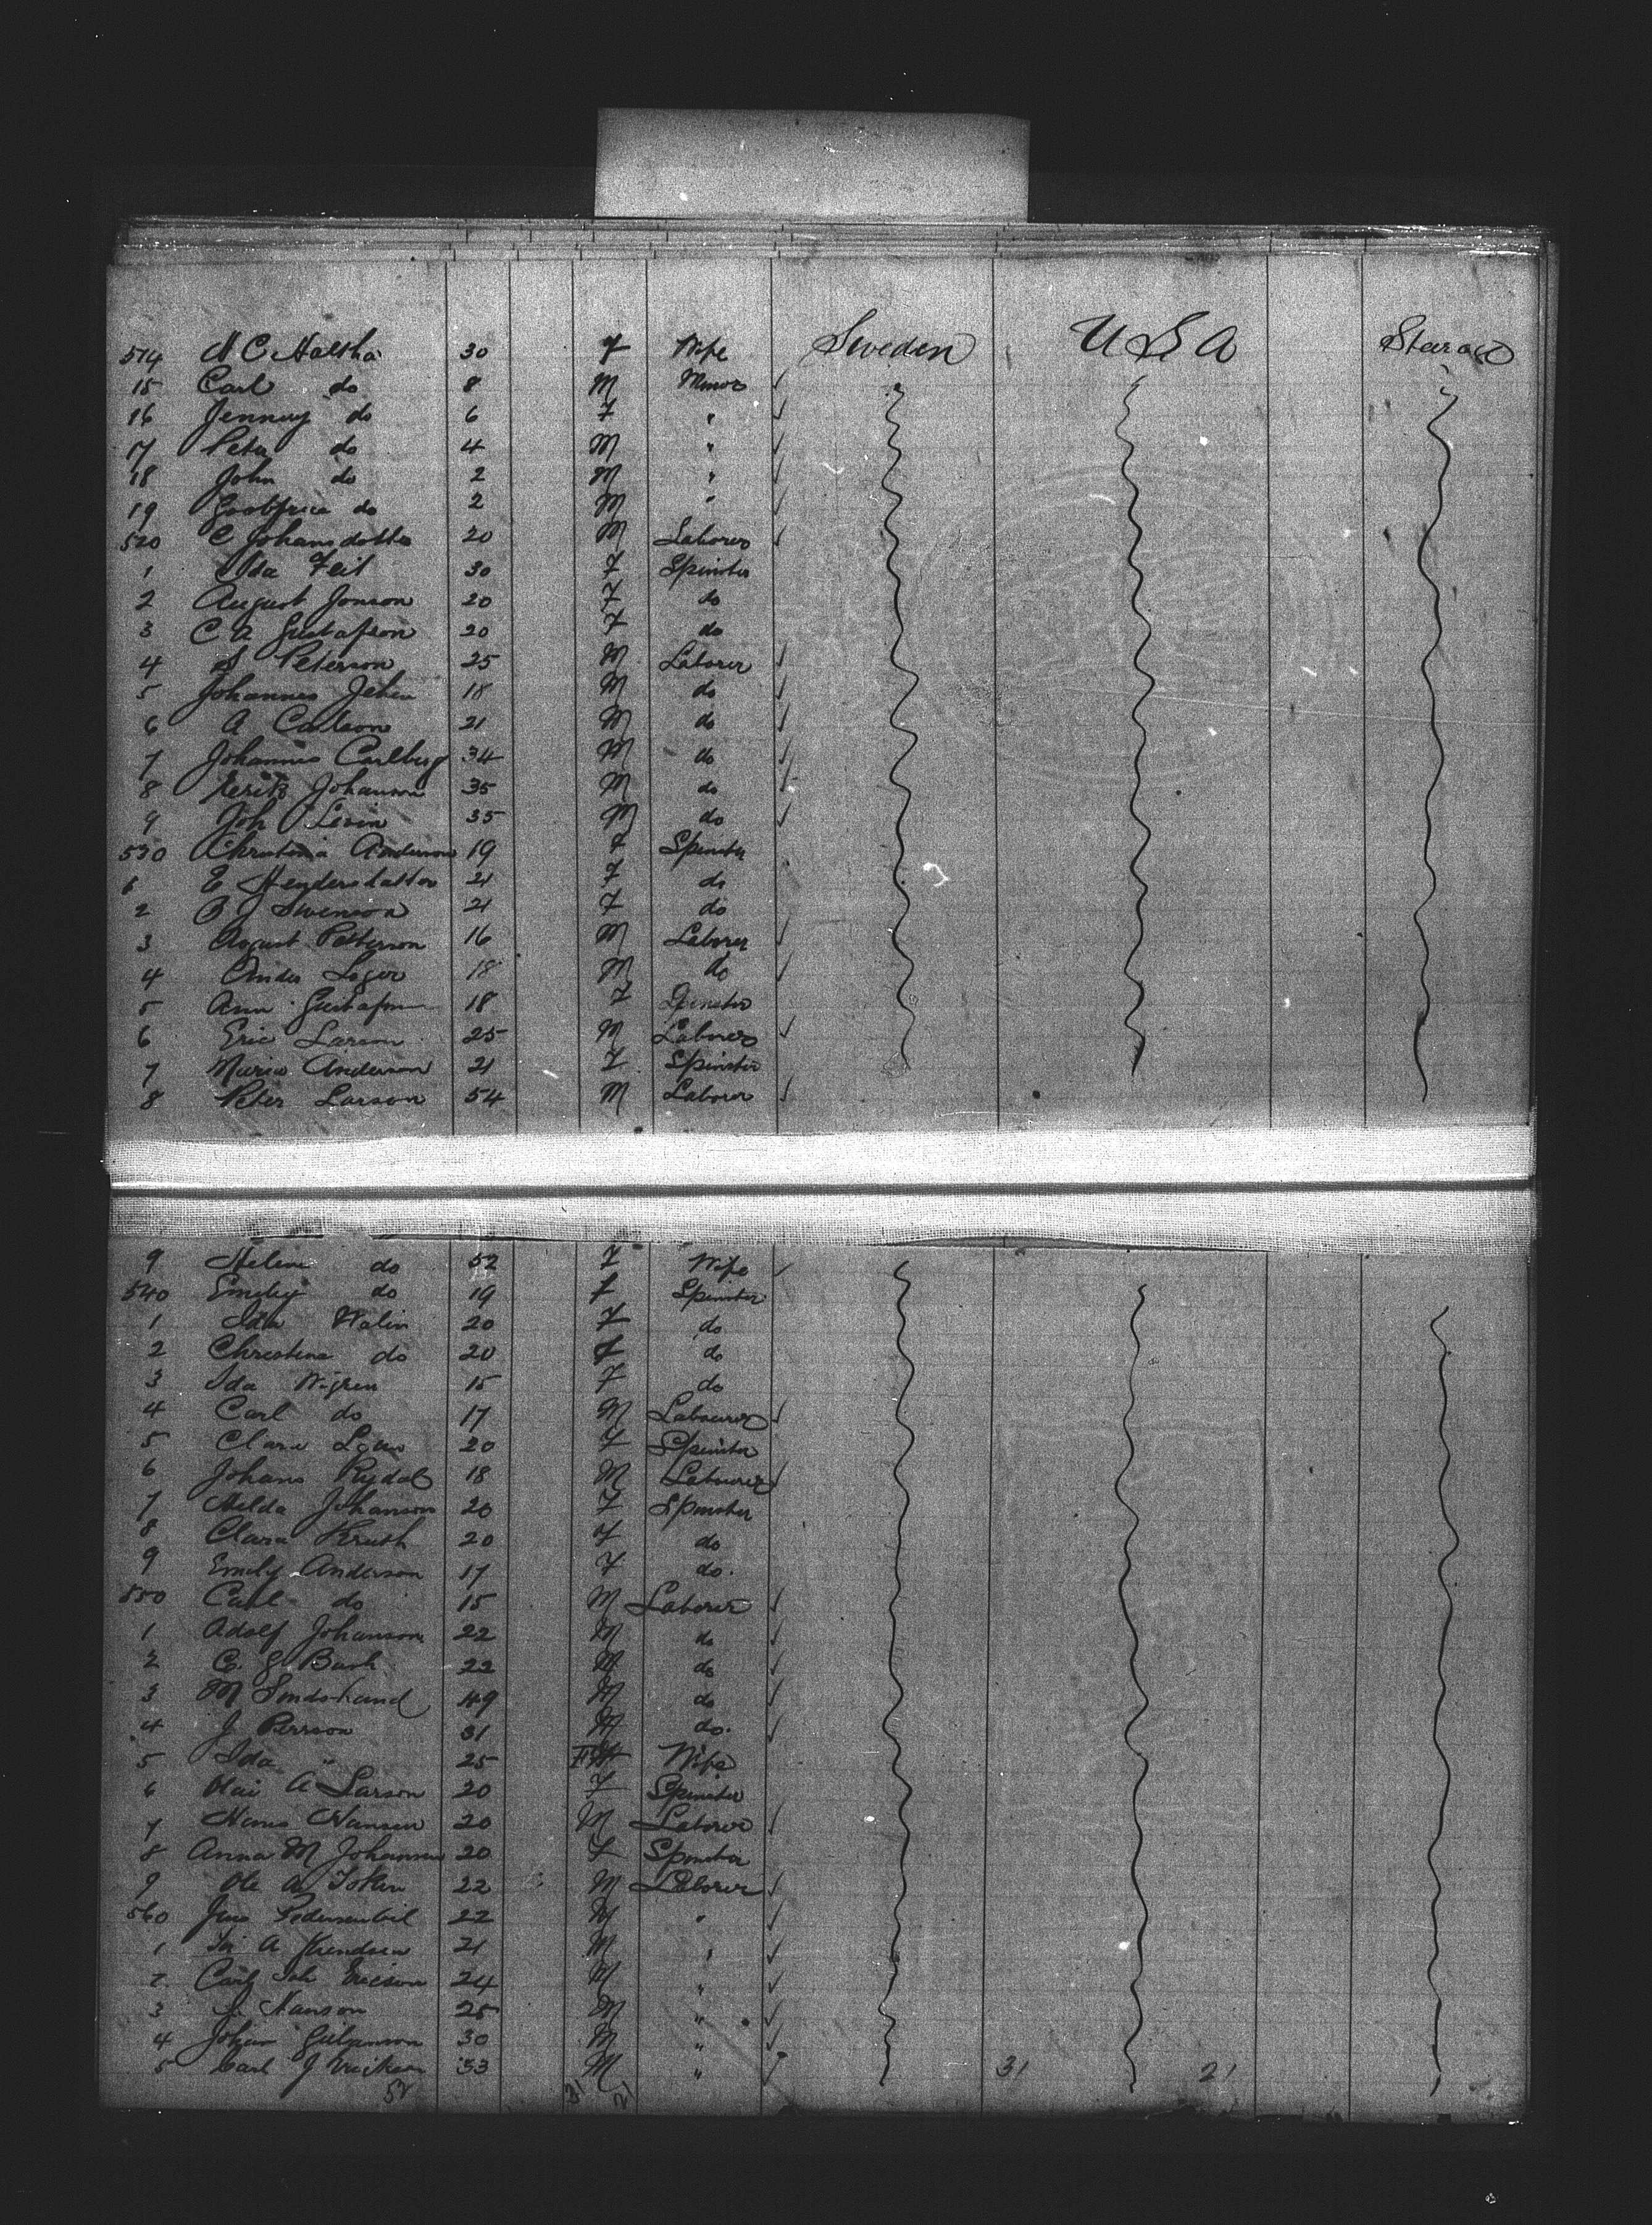 514 N C Halthá 30 F Wife Sweden USA
15 Carl do 8 M Minor
16 Jenny do 6 F "
17 Peter do 4 M "
18 John do 2 M "
19 do 2 M "
520 C Johansdotter 20 M Laborer
1 Ida 30 F Spinster
2 August Jonson 20 F do
3 C A Gustafson 20 F do
4 S Peterson 25 M Laborer
5 Johannes 18 M do
6 A Carlson 21 M do
7 Johannes Carlberg 34 M do
8 Johanson 35 M do
9 Joh Levin 35 M do
530 Christina Anderson 19 F Spinster
1 E 21 F do
2 B J Swenson 21 F do
3 August Petterson 16 M Laborer
4 18 M do
5 Ann Gustafson 18 F Spinster
6 Eric Larson 25 M Laborer
7 Maria Anderson 21 F Spinster
8 Peter Larson 54 M Laborer
9 Helena do 52 F Wife
540 Emily do 19 F Spinster
1 Ida Walin 20 F do
2 Christina do 20 F do
3 Ida Wigren 15 F do
4 Carl do 17 M Labourer
5 Clara 20 F Spinster
6 Johans Rydal 18 M Labourer
7 Hilda Johanson 20 F Spinster
8 Clara Kruth 20 F do
9 Emily Anderson 17 F do.
550 Carl do 15 M Laborer
1 Adolf Johanson 22 M do
2 C. G. 22 M do
3 M 49 M do
4 J. Persson 31 M do.
5 Ida " 25 F Wife
6 A Larson 20 F Spinster
7 Hans Hansen 20 M Laborer
8 Anna M Johannsen 20 F Spinster
9 Ole A 22 M Laborer
560 Jens 22 M "
1 A 21 M "
2 Carl Joh Ericson 24 M "
3 Hanson 25 M "
4 Johan 30 M "
5 Carl J 33 M " 31 21
52 31 21